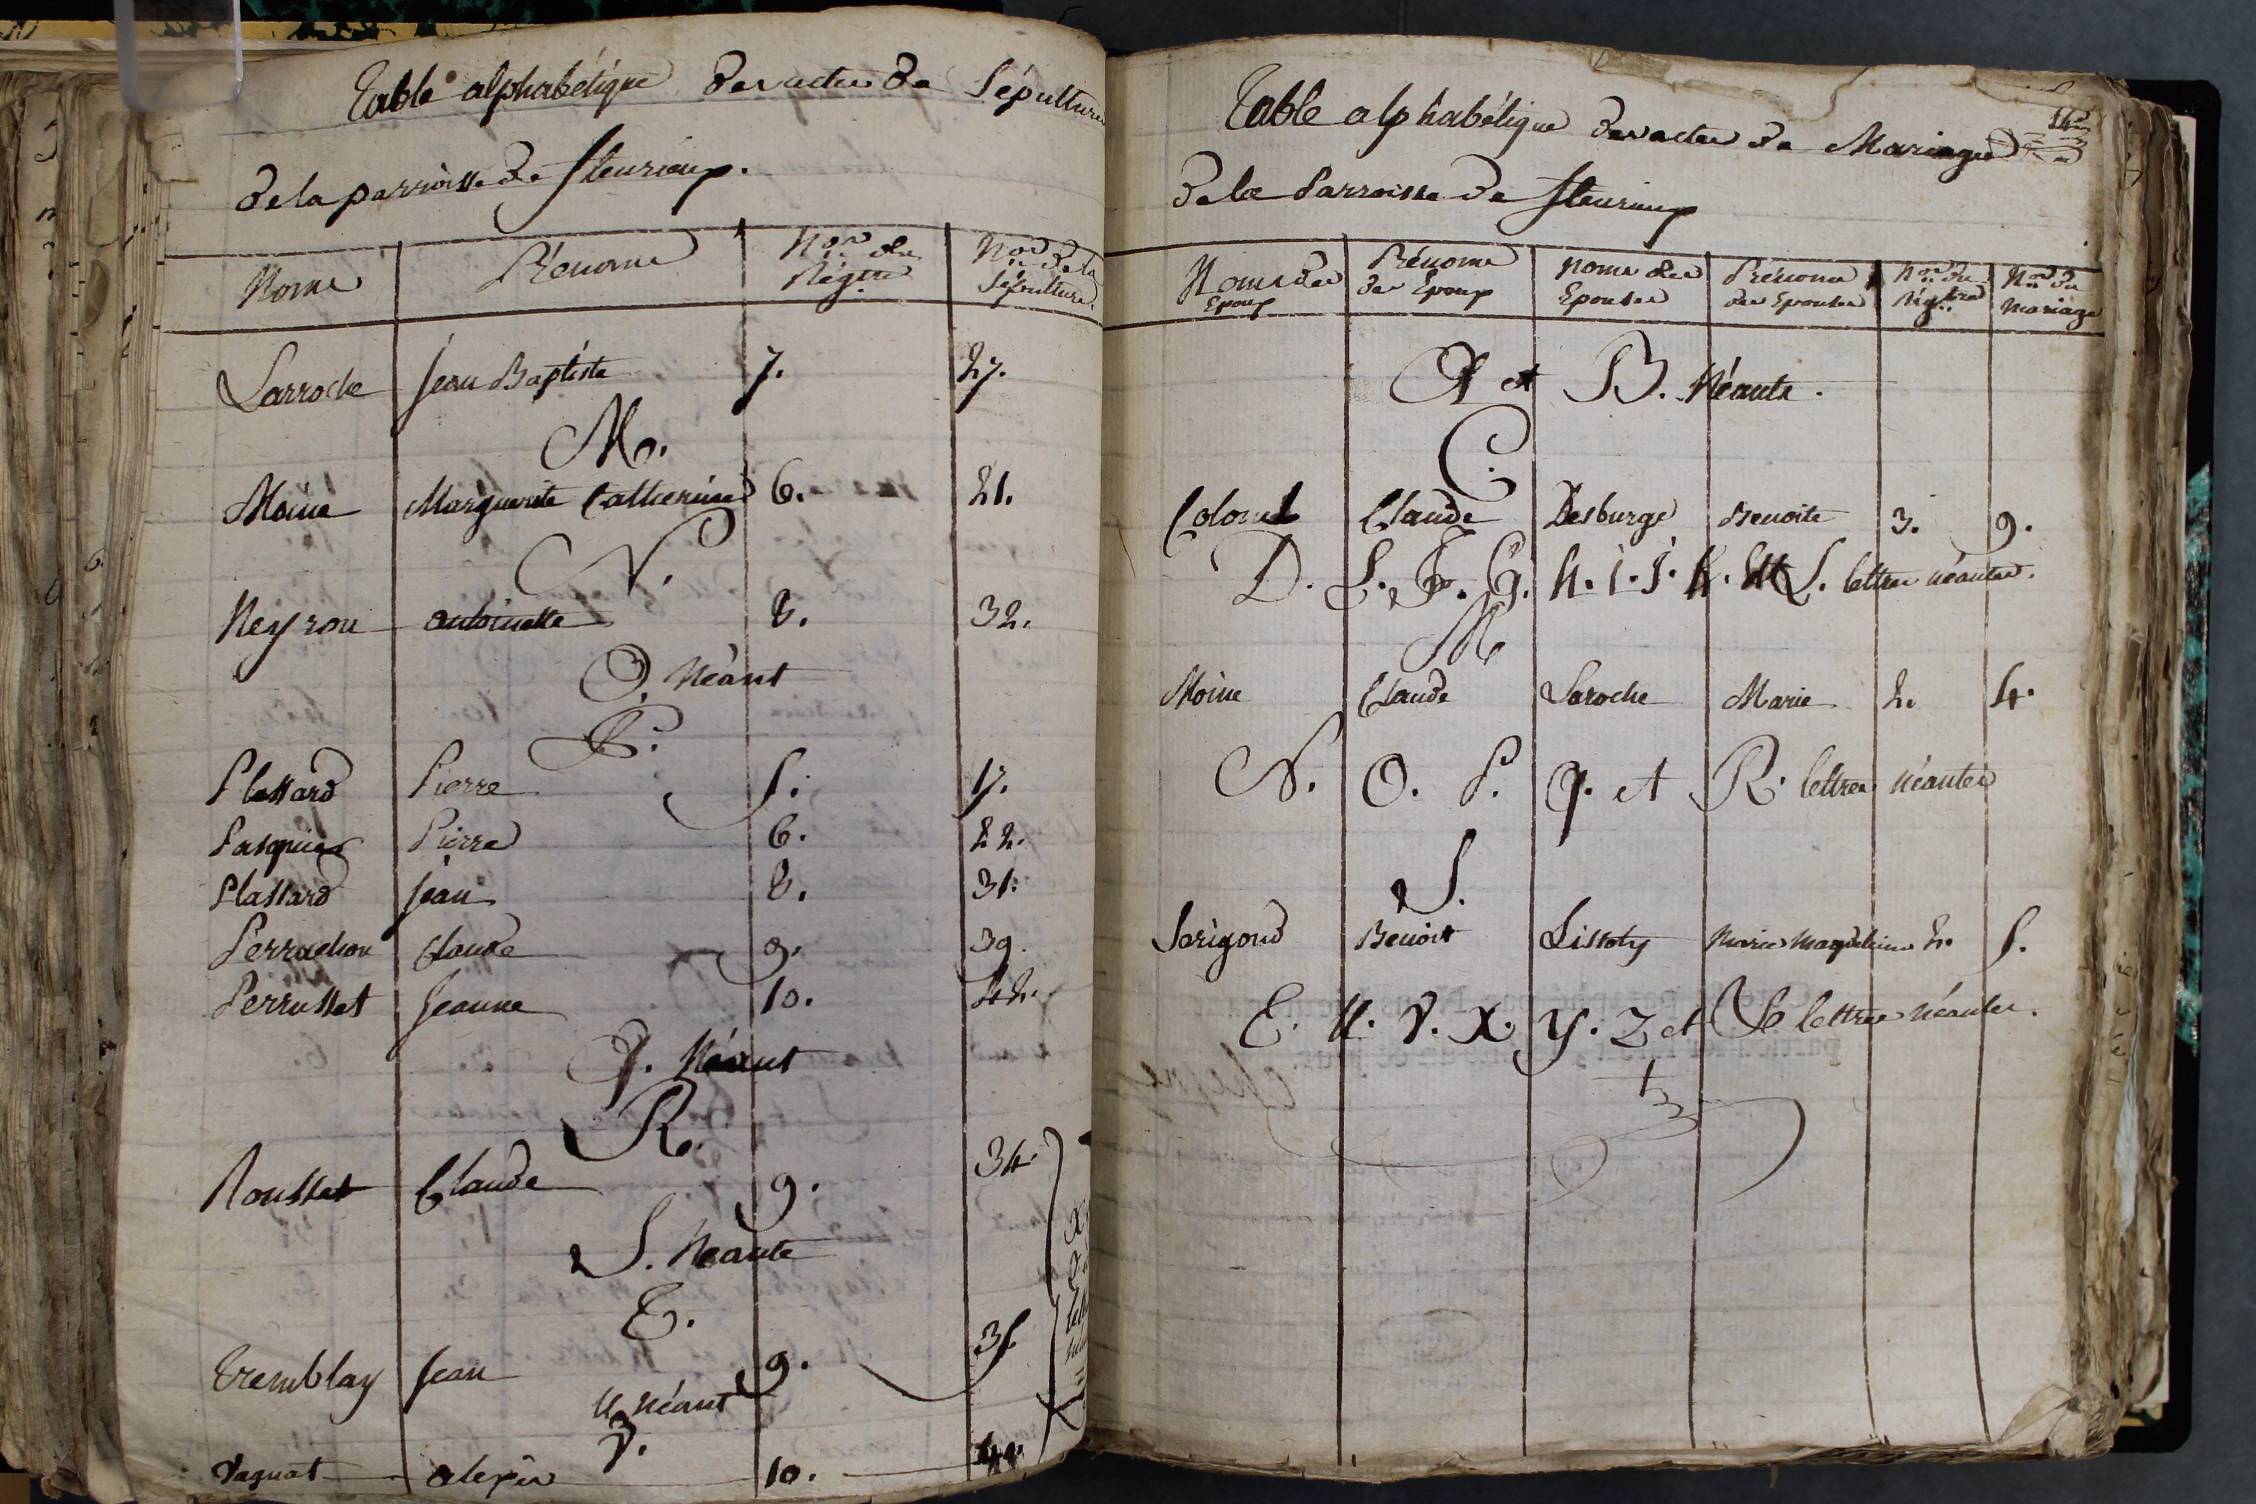 Table alphabétique des actes de Sépulture
de la parroisse de fleurieux.
Noms
Prénoms
Nos. du Régtre
Nos. de la Sépulture.
Larroche Jean Baptiste 7. 27.
M.
Moine Marguerite Catherine 6. 21.
N.
Neyron antoinette 8. 32.
O. Néant
P.
Plassard Pierre 5. 17.
Pasquier Pierre 6. 22.
Plassard Jean 8. 31.
Perrachon Claude 9. 39.
Perrusset Jeanne 10. 42.
Q. Néant
R.
Rousset Claude 9. 34.
S. Néante
T.
Tremblay Jean 9. 35
U. Néant
V.
Vaguat alexis 10.
Table alphabétique des actes de Mariages
de la Parroisse de fleurieux
Noms des Epoux
Prénoms des Epoux
Noms des Epouses
Prénoms des Epouses
Nos. du Régtre
Nos. du Mariage
A et B. Néants.
C.
Colomb Claude Desburge Benoite 3. 9.
D. E. F. G. h. i. J. K. L. lettres néantes.
M
Moine Claude Laroche Marie 2. 4.
N. O. P. Q. et R. lettres néantes
S.
Sarigond Benoit Lissoty Marie Magdeleine 2. 5.
T. U. V. X. Y. Z et & lettres néantes.